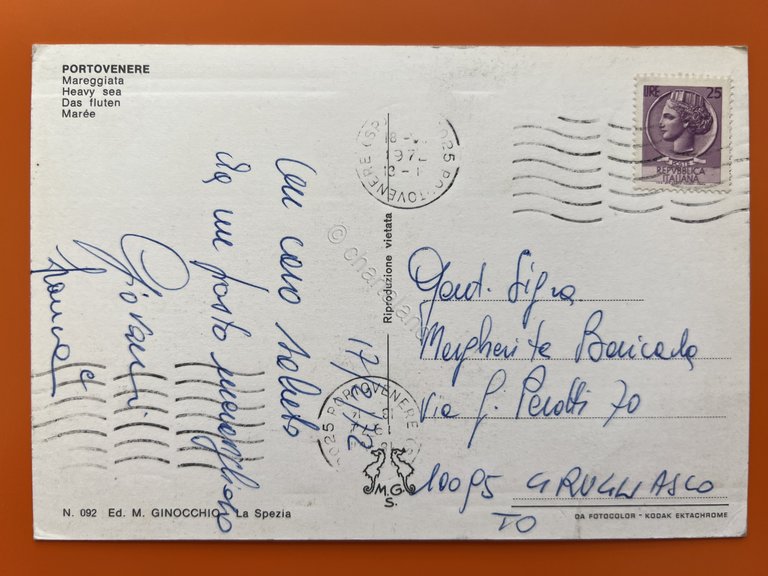 PORTOVENERE
Mareggiata
Heavy sea
Das fluten
Marée
LIRE 25
POSTE
REPUBBLICA
ITALIANA
025 PORTOVENERE (SP)
18-
197
Riproduzione vietata
Un caro saluto
da un posto meraviglioso
Giovanni
Franca
17/6/72
Gent. Sigra
Margherita
Via G. Perotti 70
10095 GRUGLIASCO
TO
9025 PORTOVENERE (S
M.G.
S.
N. 092 Ed. M. GINOCCHIO La Spezia
DA FOTOCOLOR - KODAK EKTACHROME